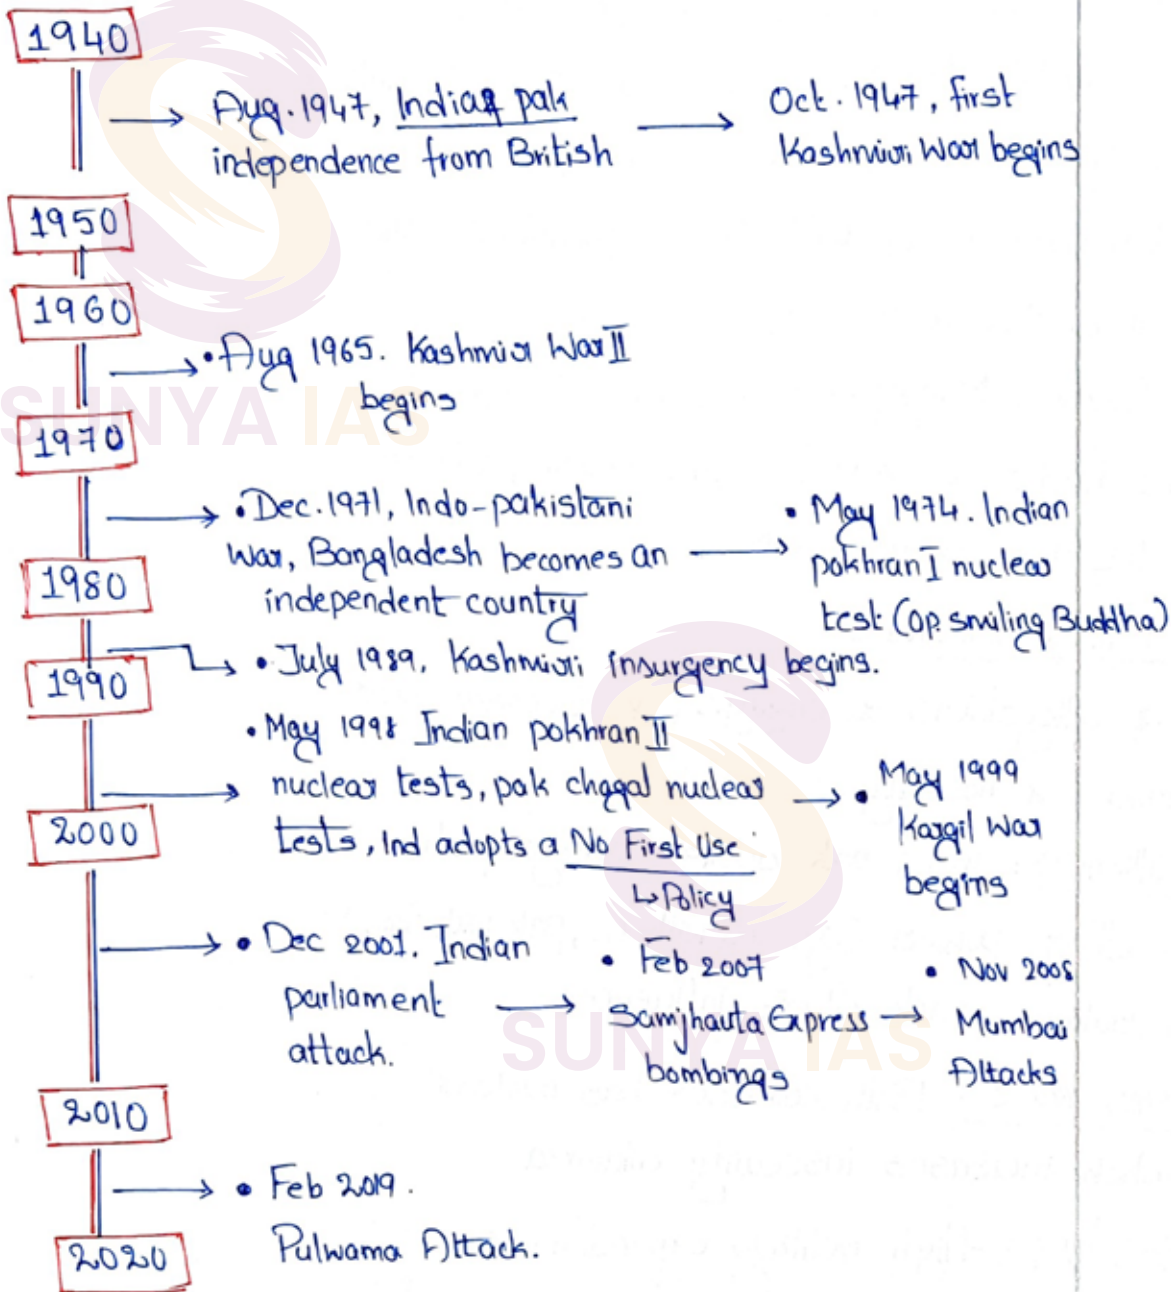 1940
Aug. 1947, India & pak
independence from British
Oct. 1947, first
Kashmiri War begins
1950
1960
• Aug 1965. Kashmir War II
begins
SUNYA IAS
1970
• Dec. 1971, Indo-pakistani
War, Bangladesh becomes an
independent country
• May 1974. Indian
pokhran I nuclear
test (Op. smiling Buddha)
1980
• July 1989, Kashmiri insurgency begins.
1990
• May 1998 Indian pokhran II
nuclear tests, pak chagal nuclear
tests, Ind adopts a No First Use
↳ Policy
• May 1999
Kargil War
begins
2000
• Dec 2001. Indian
parliament
attack.
• Feb 2007
Samjhauta Express
bombings
• Nov 2008
Mumbai
Attacks
SUNYA IAS
2010
• Feb 2019.
Pulwama Attack.
2020